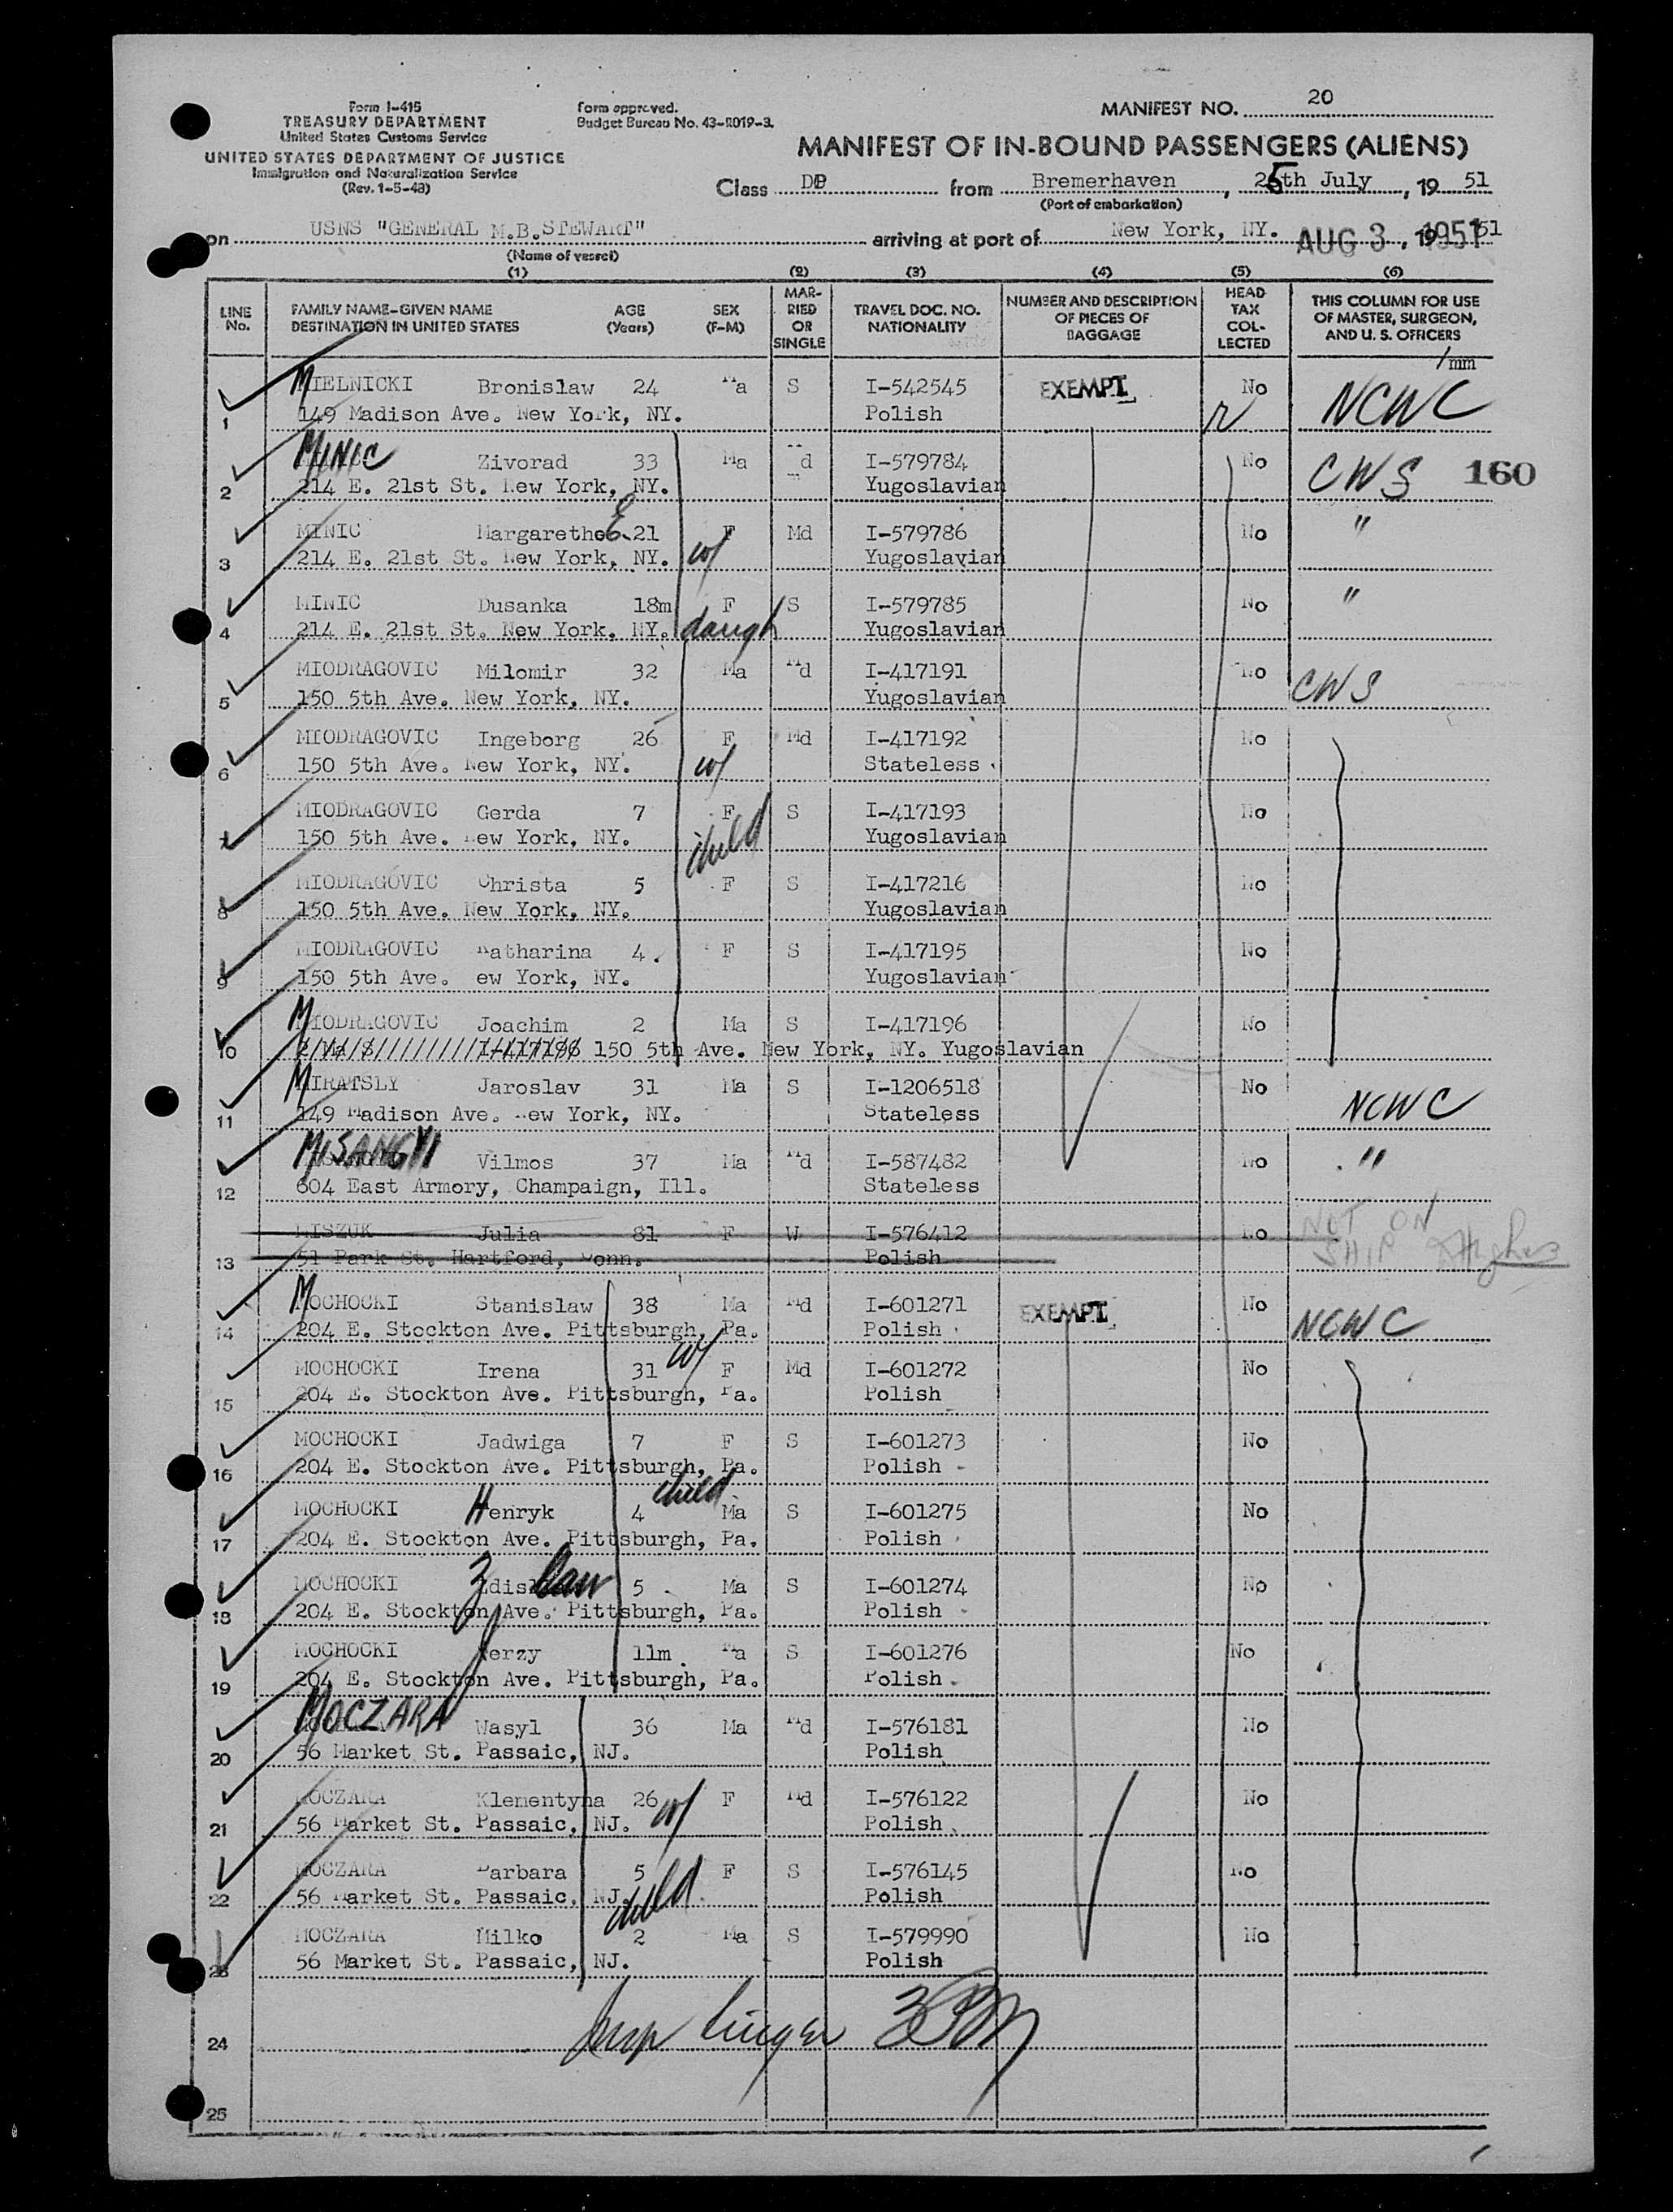 Form I-415
TREASURY DEPARTMENT
United States Customs Service
UNITED STATES DEPARTMENT OF JUSTICE
Immigration and Naturalization Service
(Rev. 1-5-48)
Form approved.
Budget Bureau No. 43-R019-3.
MANIFEST NO. 20
MANIFEST OF IN-BOUND PASSENGERS (ALIENS)
Class DP from Bremerhaven, 25th July, 19 51
(Port of embarkation)
on USNS "GENERAL M.B.STEWART" arriving at port of New York, NY. AUG 3, 1951
(Name of vessel)
(1) (2) (3) (4) (5) (6)
LINE No.
FAMILY NAME-GIVEN NAME AGE (Years) SEX (F-M)
DESTINATION IN UNITED STATES
MARRIED OR SINGLE
TRAVEL DOC. NO. NATIONALITY
NUMBER AND DESCRIPTION OF PIECES OF BAGGAGE
HEAD TAX COLLECTED
THIS COLUMN FOR USE OF MASTER, SURGEON, AND U. S. OFFICERS
1 mm
MIELNICKI Bronislaw 24 Ma S I-542545 EXEMPT No NCWC
1 149 Madison Ave. New York, NY. Polish
MINIC Zivorad 33 Ma d I-579784 No CWS 160
2 214 E. 21st St. New York, NY. Yugoslavian
MINIC Margarethe E. 21 F Md I-579786 No "
3 214 E. 21st St. New York, NY. w/ Yugoslavian
MINIC Dusanka 18m F S I-579785 No "
4 214 E. 21st St. New York, NY. daugh Yugoslavian
MIODRAGOVIC Milomir 32 Ma Md I-417191 No CWS
5 150 5th Ave. New York, NY. Yugoslavian
MIODRAGOVIC Ingeborg 26 F Md I-417192 No
6 150 5th Ave. New York, NY. w/ Stateless
MIODRAGOVIC Gerda 7 F S I-417193 No
7 150 5th Ave. New York, NY. child Yugoslavian
MIODRAGOVIC Christa 5 F S I-417216 No
8 150 5th Ave. New York, NY. Yugoslavian
MIODRAGOVIC Katharina 4 F S I-417195 No
9 150 5th Ave. ew York, NY. Yugoslavian
MIODRAGOVIC Joachim 2 Ma S I-417196 No
10 150 5th Ave. New York, NY. Yugoslavian
MIRATSLY Jaroslav 31 Ma S I-1206518 No NCWC
11 149 Madison Ave. New York, NY. Stateless
MISANGYI Vilmos 37 Ma Md I-587482 No "
12 604 East Armory, Champaign, Ill. Stateless
MISZUK Julia 81 F W I-576412 No NOT ON
13 51 Park St. Hartford, Conn. Polish SHIP Hughes
MOCHOCKI Stanislaw 38 Ma Md I-601271 EXEMPT No NCWC
14 204 E. Stockton Ave. Pittsburgh, Pa. Polish
MOCHOCKI Irena 31 w/ F Md I-601272 No
15 204 E. Stockton Ave. Pittsburgh, Pa. Polish
MOCHOCKI Jadwiga 7 F S I-601273 No
16 204 E. Stockton Ave. Pittsburgh, Pa. Polish
MOCHOCKI Henryk 4 child Ma S I-601275 No
17 204 E. Stockton Ave. Pittsburgh, Pa. Polish
MOCHOCKI Zdislaw 5 Ma S I-601274 No
18 204 E. Stockton Ave. Pittsburgh, Pa. Polish
MOCHOCKI Jerzy 11m Ma S I-601276 No
19 204 E. Stockton Ave. Pittsburgh, Pa. Polish
MOCZARA Wasyl 36 Ma Md I-576181 No
20 56 Market St. Passaic, NJ. Polish
MOCZARA Klementyna 26 w/ F Md I-576122 No
21 56 Market St. Passaic, NJ. Polish
MOCZARA Barbara 5 F S I-576145 No
22 56 Market St. Passaic, NJ. child Polish
MOCZARA Milko 2 Ma S I-579990 No
23 56 Market St. Passaic, NJ. Polish
24
25